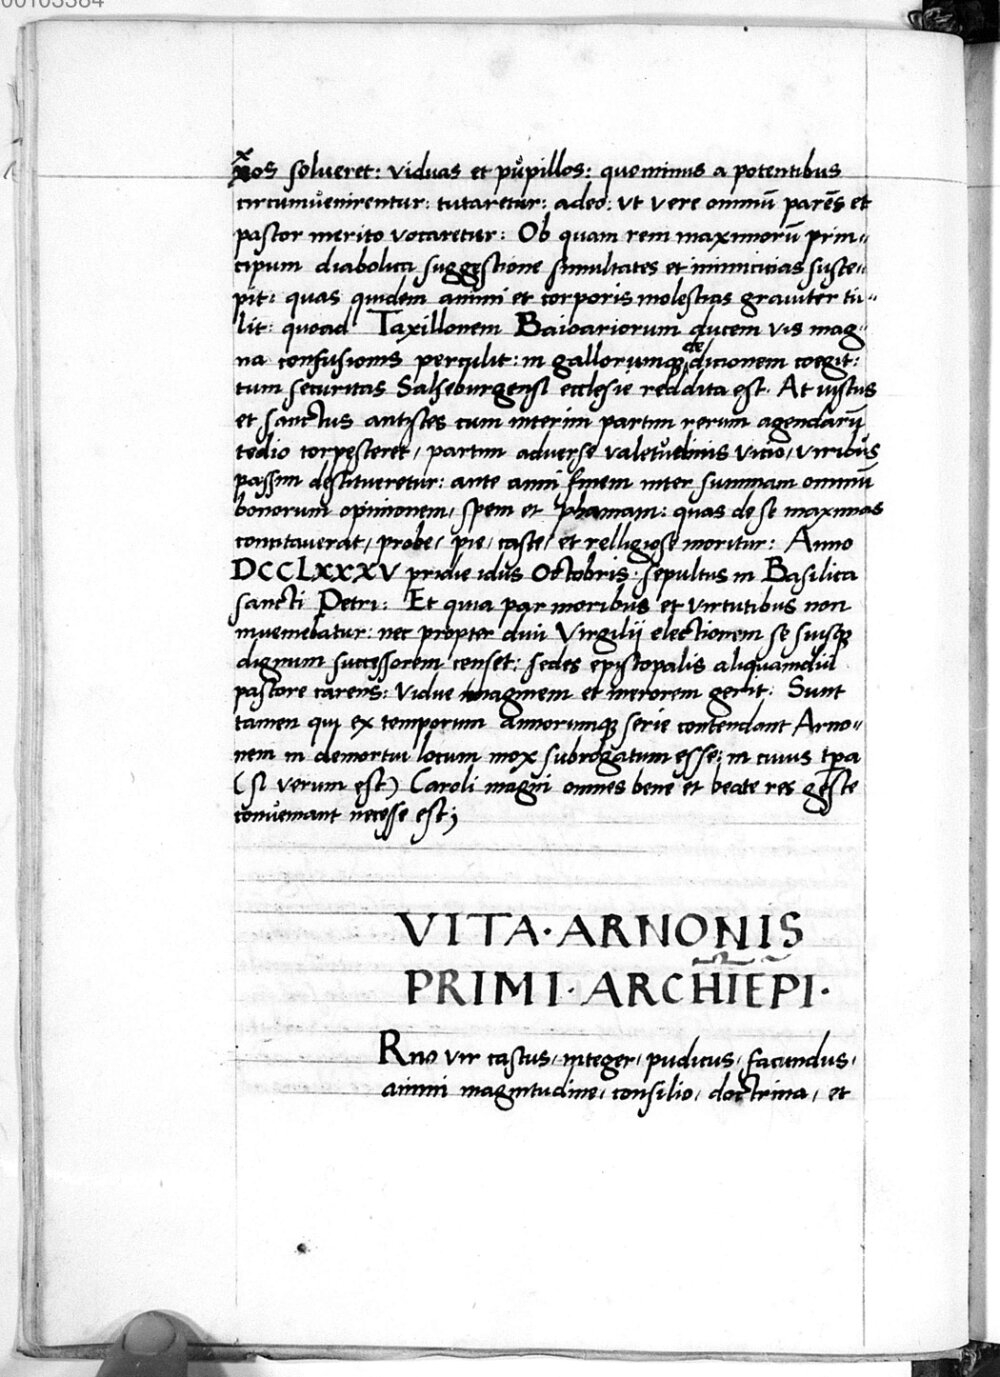 00103384
xp̄os solveret: viduas et pupillos: quominus a potentibus
circumuenirentur: tutaretur: adeo: ut vere omniū parēs et
pastor merito vocaretur: Ob quam rem maximorū prin-
cipum diabolica suggestione simultates et inimicicias susce-
pit: quas quidem animi et corporis molestias grauiter tu-
lit: quoad Taxillonem Baioariorum ducem vis mag-
na confusionis perculit: in gallorumq; dedicionem coegit:
tum securitas Salseburgensi ecclesie reddita est. At iustus
et sanctus antistes cum interim partim rerum agendarū
tedio torpesceret, partim aduerse valetudinis vicio, viribus
passim destitueretur: ante anni finem inter summam omniū
bonorum opinionem, spem et phamam: quas de se maximas
concitauerat, probe, pie, caste, et relligiose moritur: Anno
DCCLXXXV pridie idus Octobris. sepultus in Basilica
sancti Petri: Et quia par moribus et virtutibus non
inueniebatur: nec propter diui Virgilij electionem se suisq;
dignum successorem censet: sedes episcopalis aliquamdiu
pastore carens: vidue imaginem et merorem gerit: Sunt
tamen qui ex temporum annorumq; serie contendant Arno-
nem in demortui locum mox subrogatum esse: in cuius tpa
(si verum est) Caroli magni omnes bene et beate res geste
conueniant necesse est;
VITA·ARNONIS
PRIMI·ARCHIEPI·
Rno vir castus, integer, pudicus, facundus,
animi magnitudine, consilio, doctrina, et